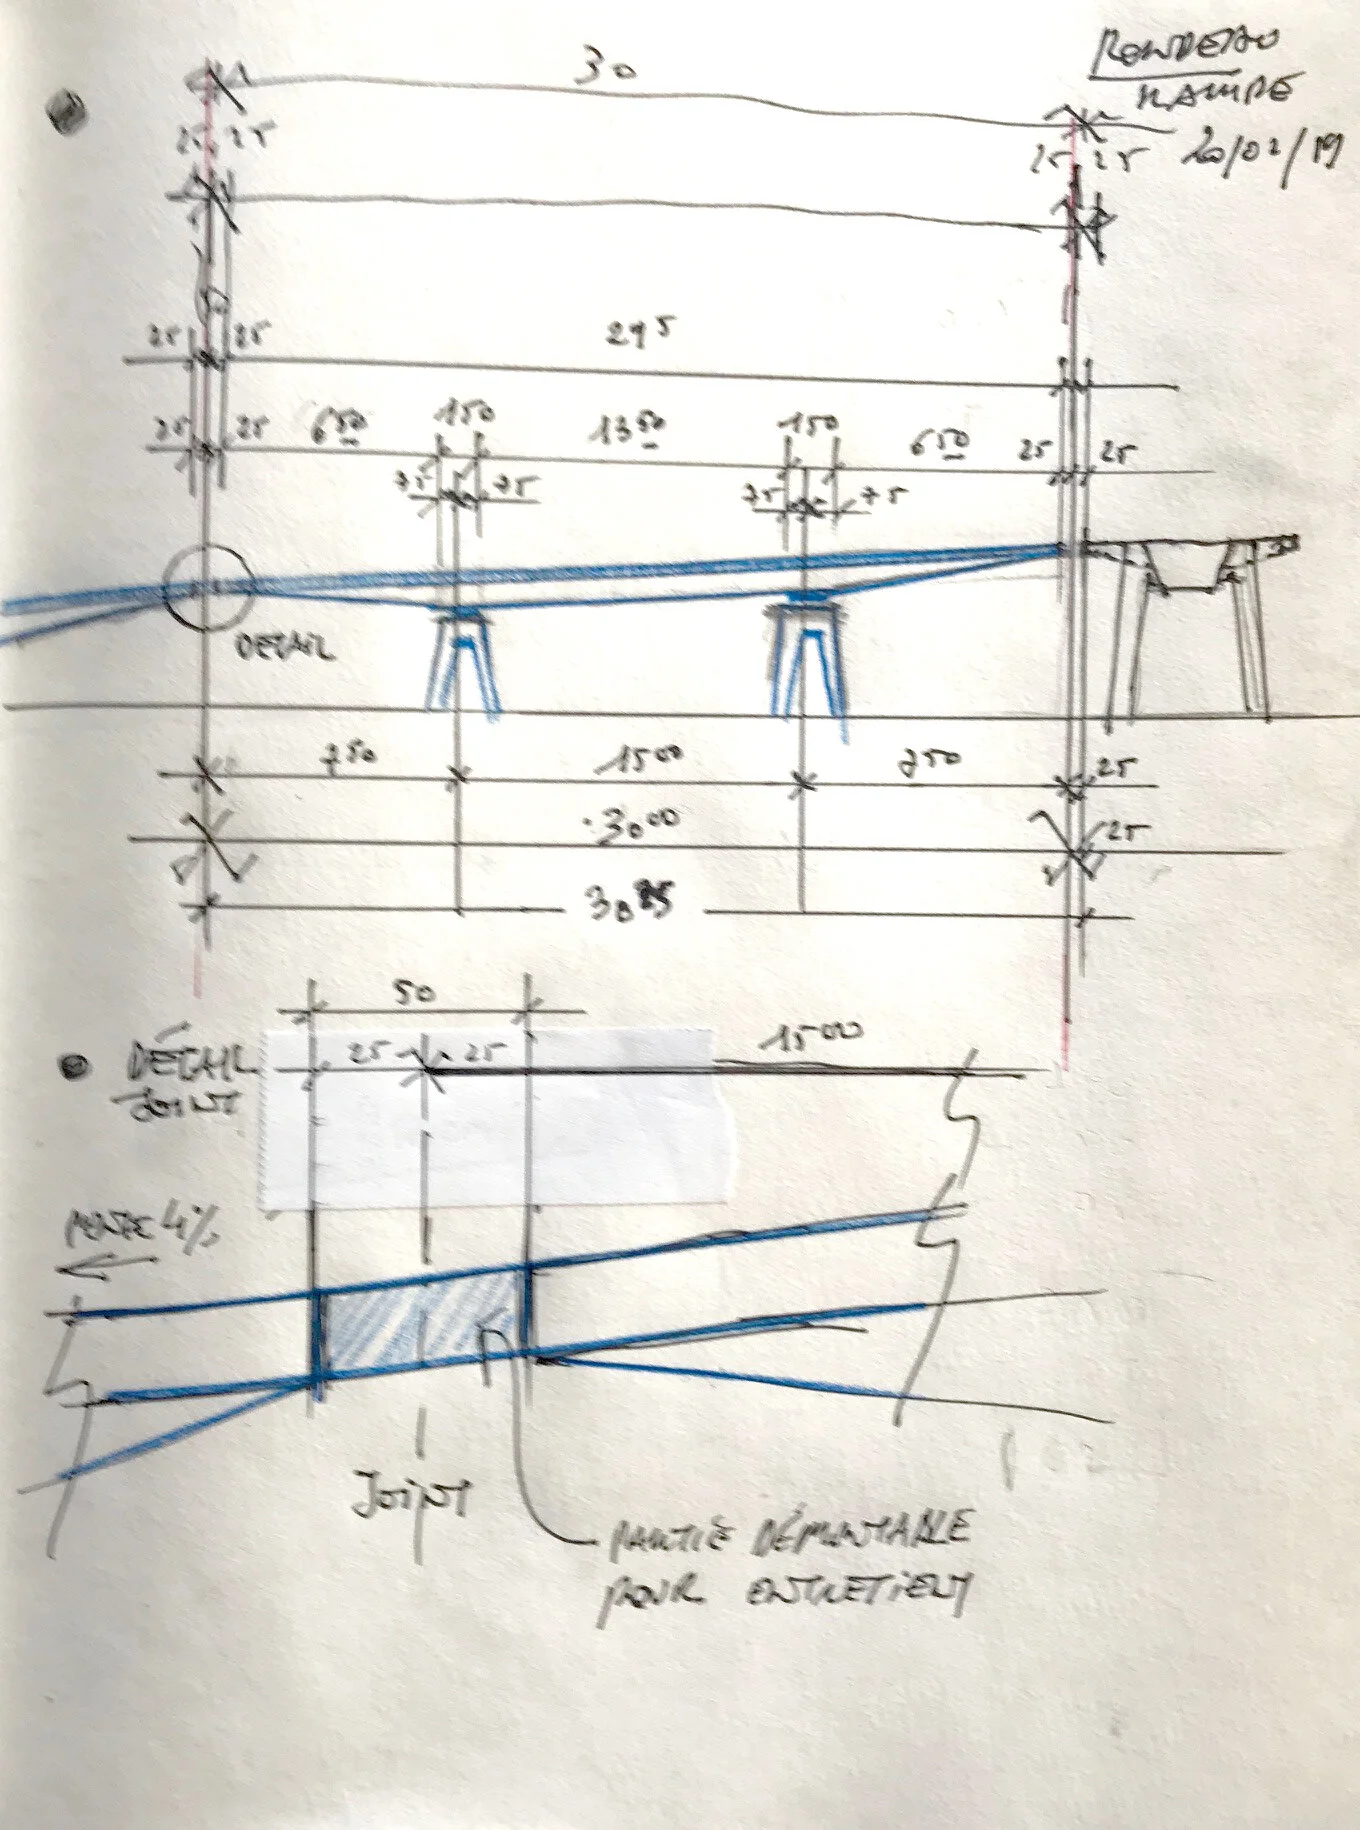 30
RONDEAU
RAMPE
20/02/19
25 25
25 25
25 25
29 5
25 25
6 50
150
13 50
150
6 50
25 25
75 75
75 75
DETAIL
750
15 00
750
25
30 00
25
30 25
50
DÉTAIL
JOINT
25 25
15 00
PENTE 4%
JOINT
PARTIE DÉMONTABLE
POUR ENTRETIENT